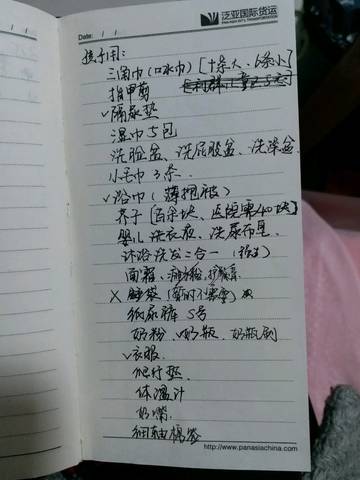 泛亚国际货运
PAN ASIA INT'L TRANSPORTATION
Date: / /
孩子用:
三角巾(口水巾)[十条大、6条小]
指甲剪
✓隔尿垫
湿巾5包
洗脸盆、洗屁股盆、洗澡盆
小毛巾3条
✓浴巾(薄抱被)
芥子[百余块、医院要40块]
婴儿洗衣液、洗尿布皂
沐浴洗发二合一
面霜、
X 睡袋(暂时不需要)
纸尿裤 S号
奶粉、奶瓶、奶瓶刷
✓衣服
爬行垫
体温计
奶嘴
细轴棉签
http://www.panasiachina.com